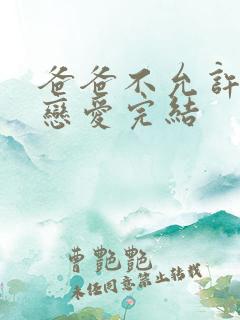 爸爸不允許
戀愛完結
曹艷艷
未任同意禁止转载